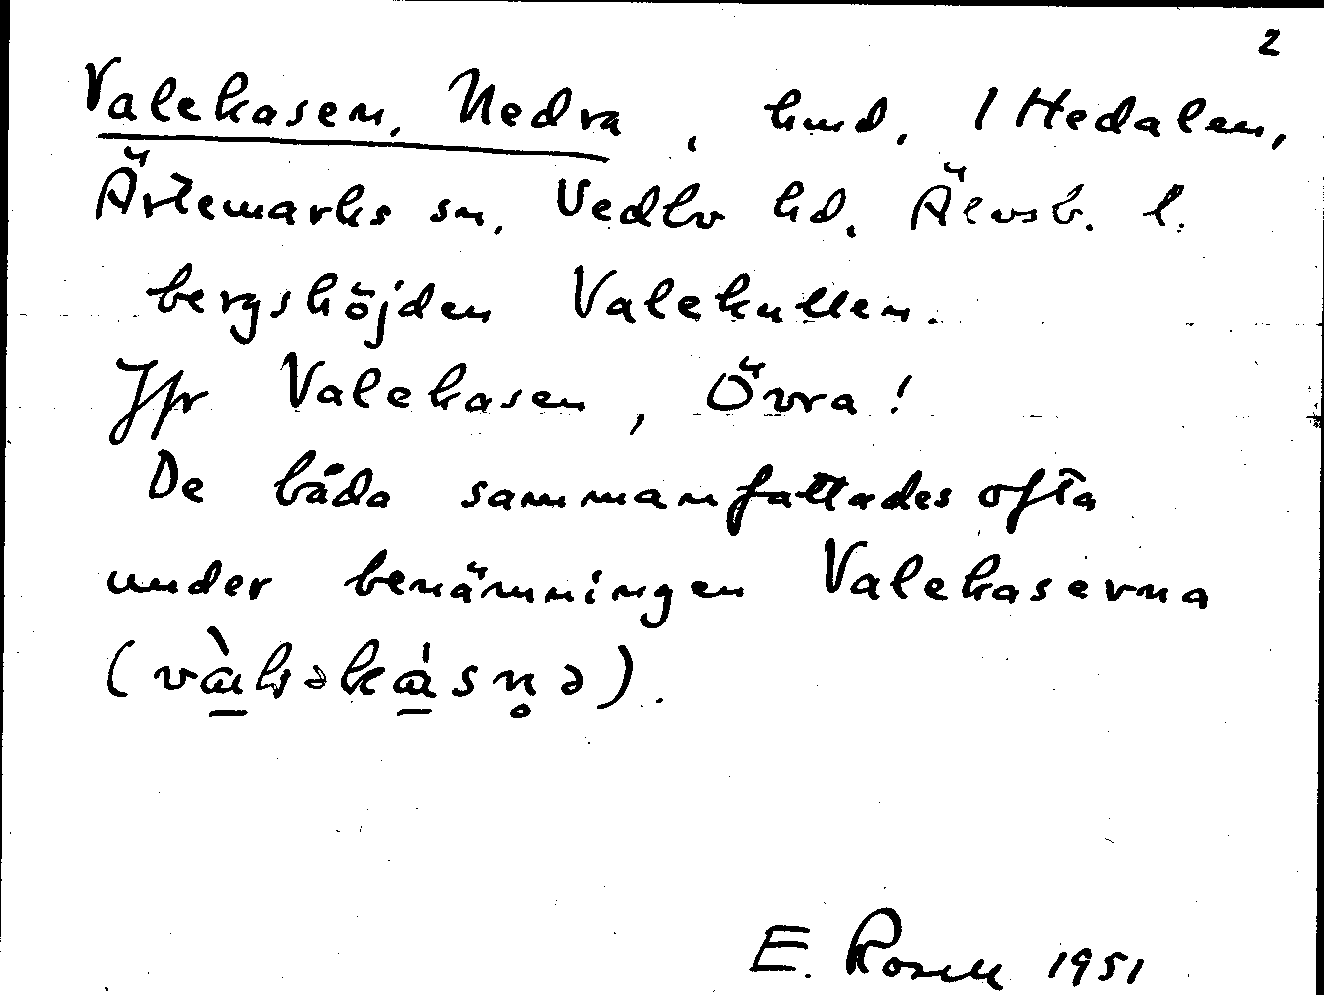 2
Valekasen, Nedra, hmd. 1 Hedalen,
Ärtemarks sn, Vedbo hd. Älvsb. l.
bergshöjden Valekullen.
Jfr Valekasen, Övra!
De båda sammanfattades ofta
under benämningen Valekaserna
E. Rosell 1951